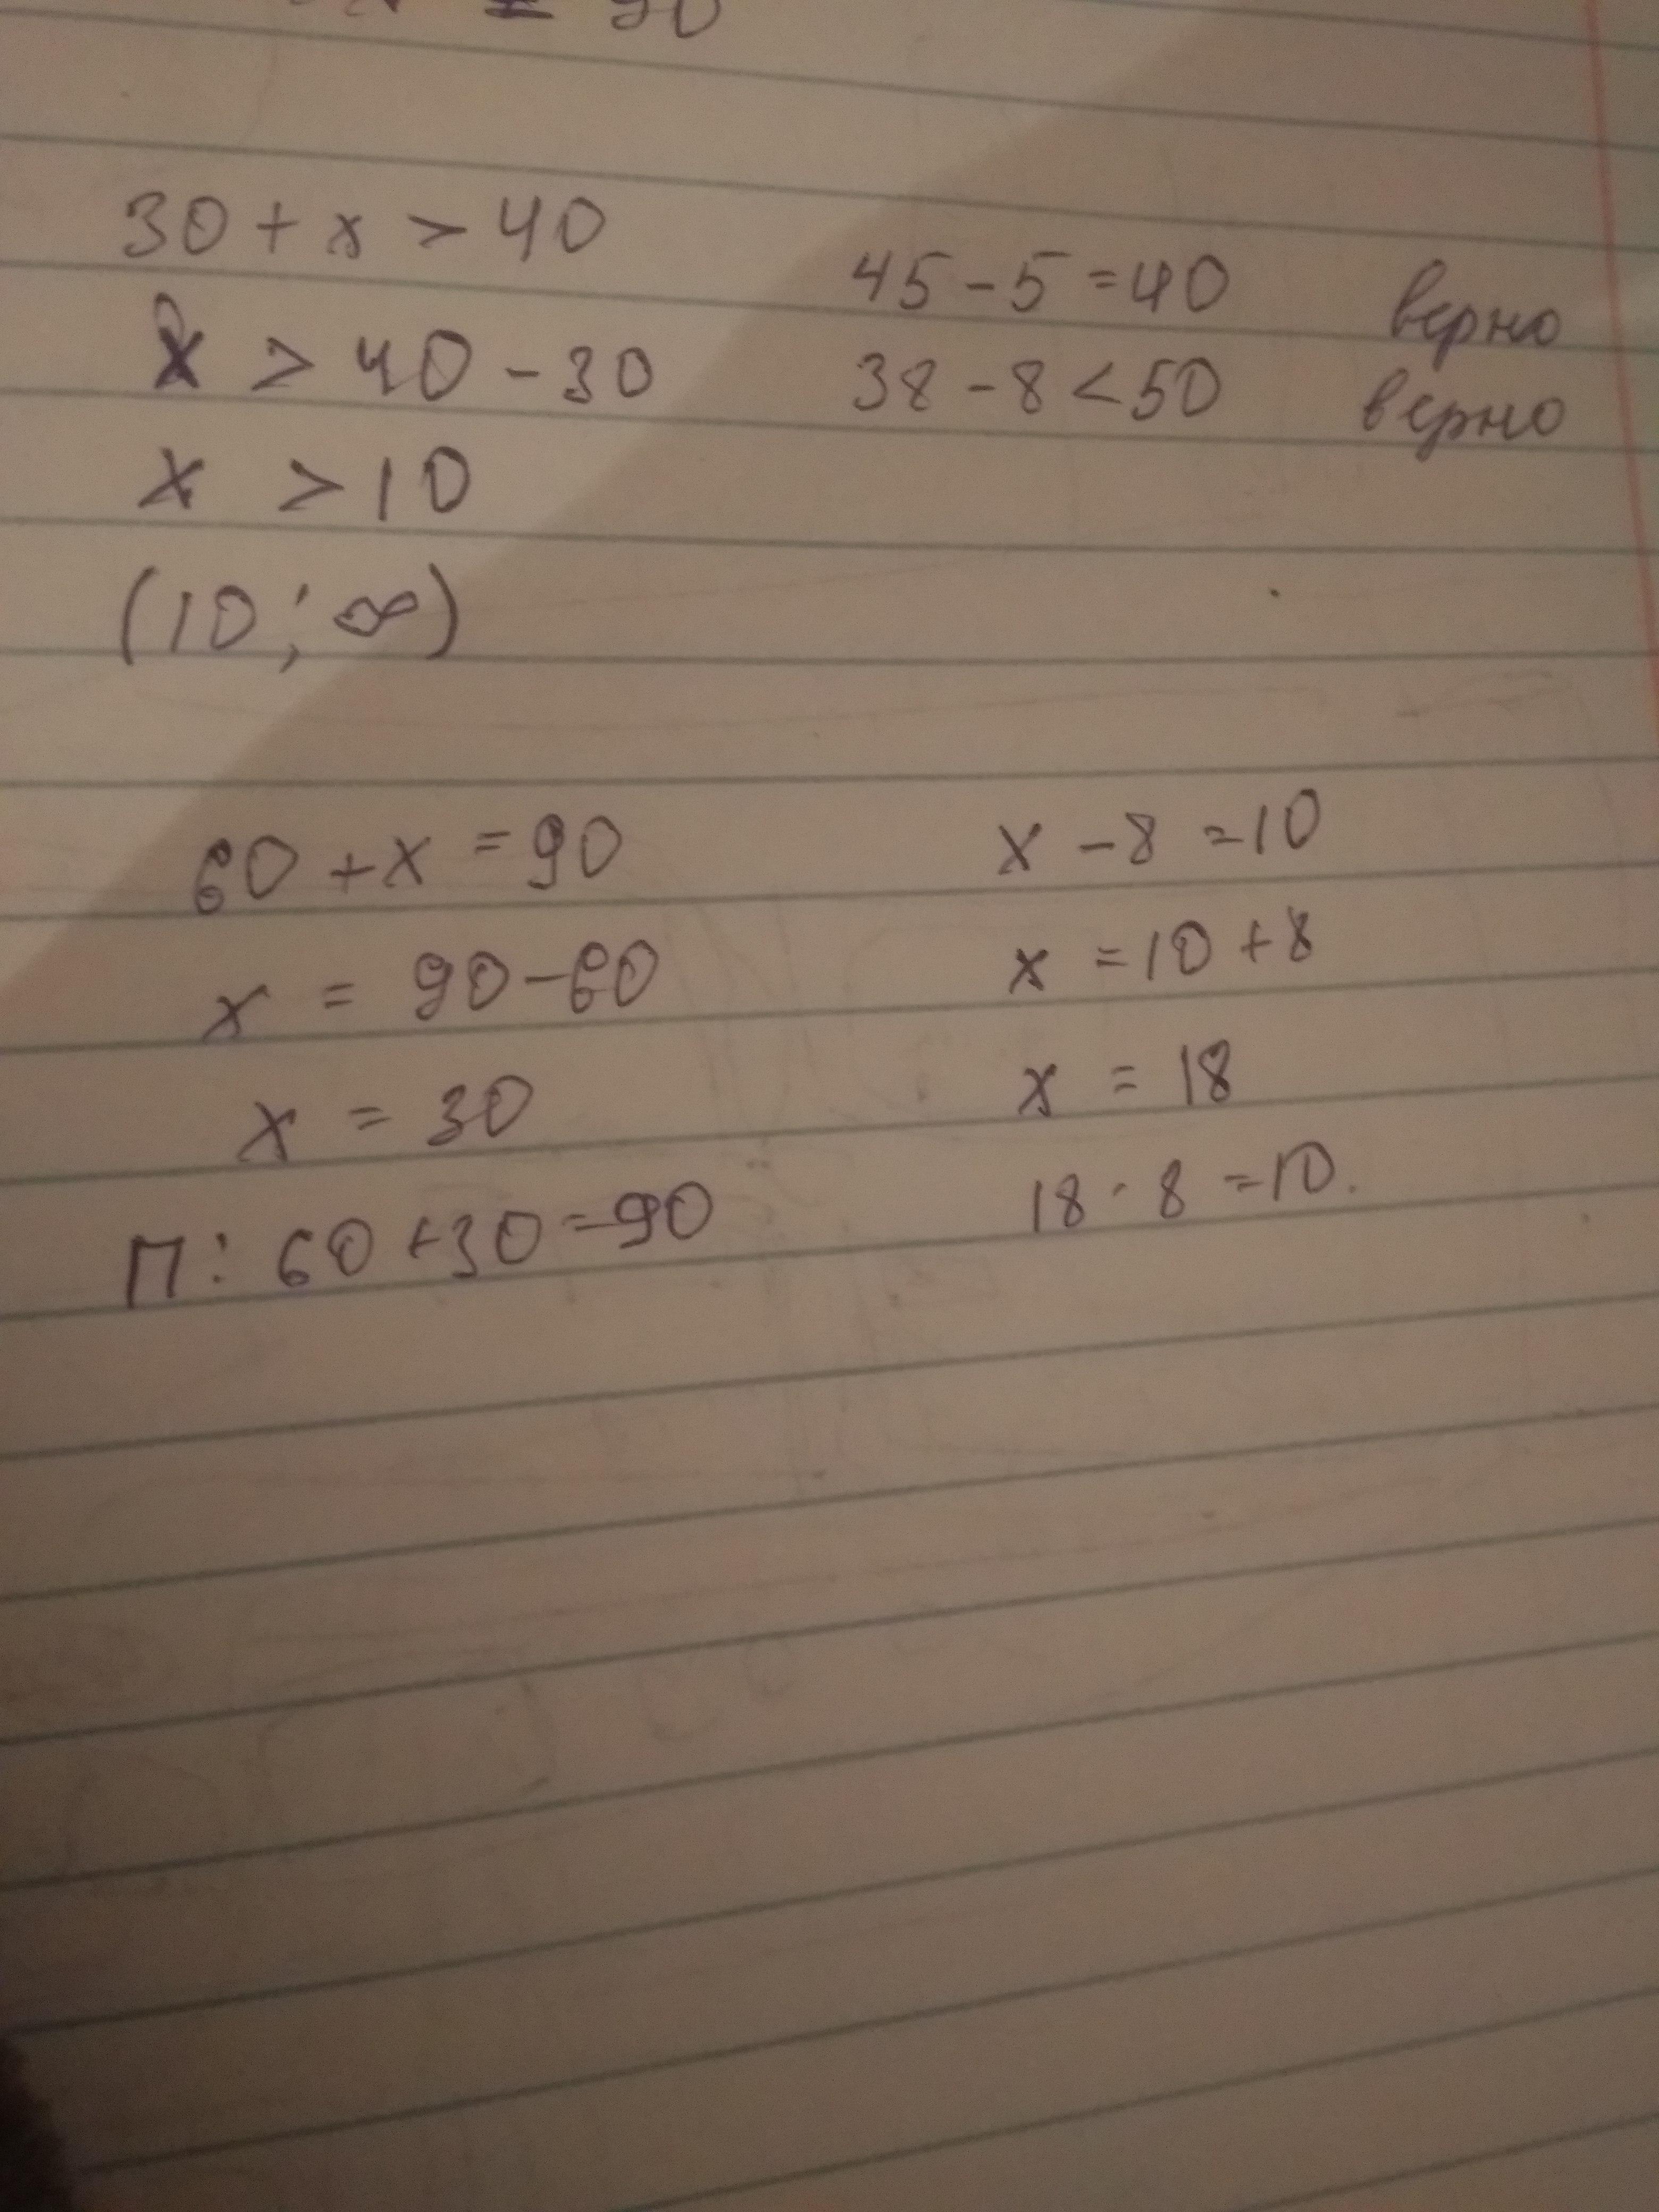 = 90
30 + x > 40
x > 40 - 30
x > 10
(10; ∞)
45 - 5 = 40 верно
38 - 8 < 50 верно
60 + x = 90
x = 90 - 60
x = 30
П: 60 + 30 = 90
x - 8 = 10
x = 10 + 8
x = 18
18 - 8 = 10.